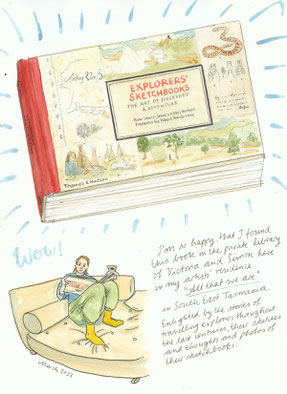 EXPLORERS'
SKETCHBOOKS
THE ART OF DISCOVERY
& ADVENTURE
Thames & Hudson
Wow!
I'm so happy, that I found
this book in the private library
of Victoria and Simon here
in my artists' residence
"All that we are"
in South East Tasmania.
Enlighted by the stories of
travelling explorers throughout
the last centuries, their sketches
and thoughts and photos of
their sketchbooks.
March 2022